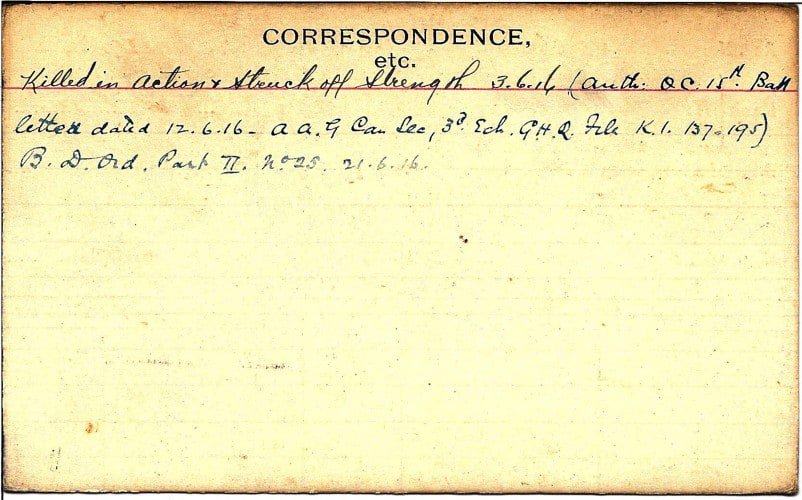 CORRESPONDENCE,
etc.
Killed in action & Struck off Strength 3.6.16 (auth: O.C. 15th. Batt
letter dated 12.6.16 - A A. G Can Sec, 3d. Ech. G.H.Q. File K.1. 137-195)
B. D. Ord. Part II. No 25. 21.6.16.